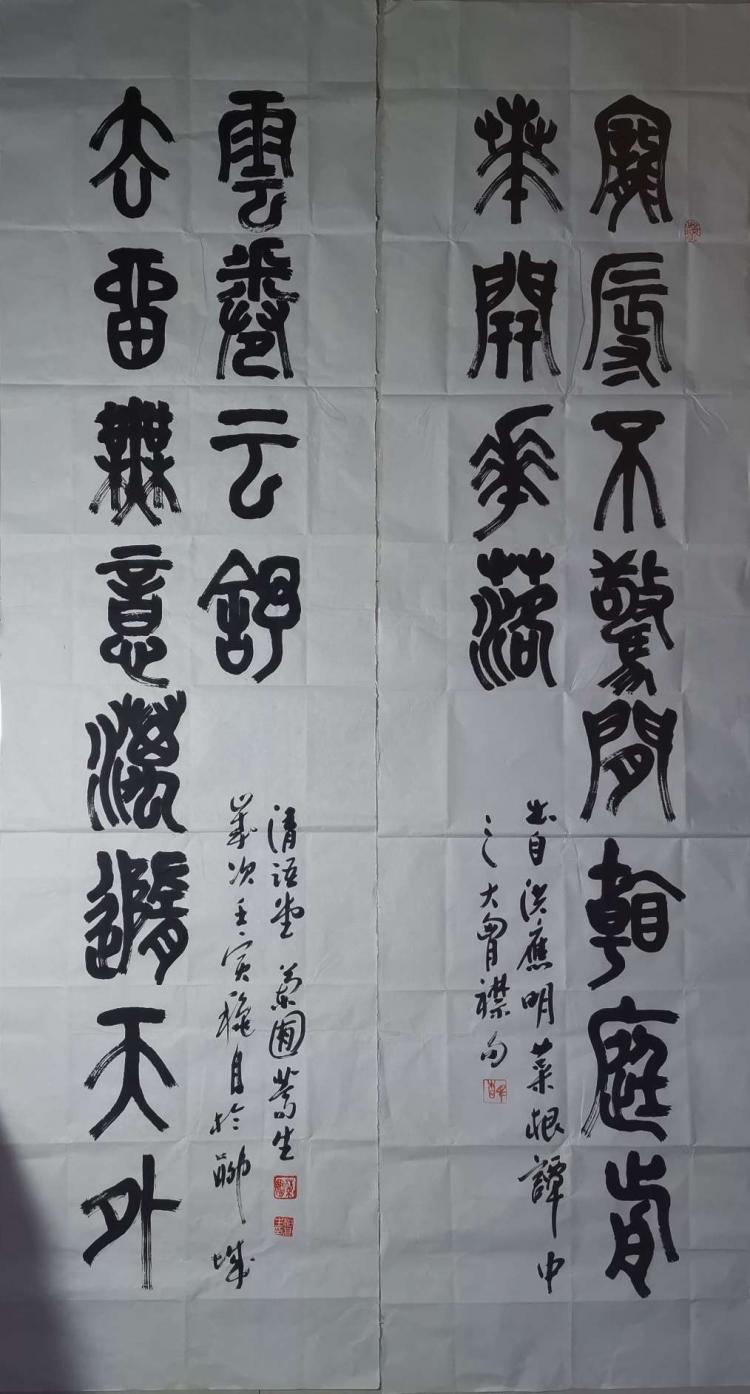 寵辱不驚閒看庭前
華開花落
出自洪應明菜根譚中
之大胷襟句
去留無意漫隨天外
雲卷云舒
歲次壬寅龝月於聊城
清語堂蘭圃蒿生